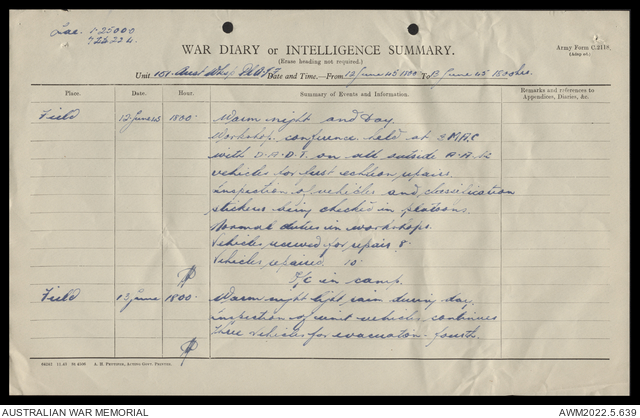 Lae. 1-25000
725226
WAR DIARY OR INTELLIGENCE SUMMARY.
(Erase heading not required.)
Army Form C.2118,
(Adapted).
Unit 101 Aust Wksp Date and Time.—From 12 June 45 1800 To 13 June 45 1800 hrs.
Place. Date. Hour. Summary of Events and Information. Remarks and references to
Appendices, Diaries, &c.
Field 12 June 45 1800. Warm night and Day.
Workshop conference held at
with on all outside
vehicles for first echelon repairs.
Inspection of vehicles and classification
stickers being checked in platoons.
Normal duties in workshops.
Vehicles received for repair 8.
Vehicles repaired 10.
in camp.
Field 13 June 1800. Warm night light rain during day.
Inspection of unit vehicles continues
Three vehicles for evacuation - fourth.
A. H. PETTIFER, ACTING GOVT. PRINTER.
AUSTRALIAN WAR MEMORIAL AWM2022.5.639